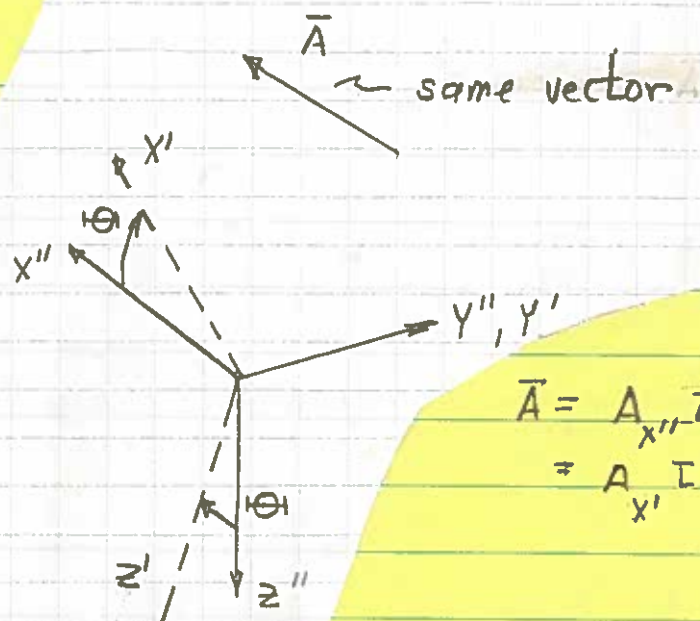 Ā
same vector
X'
Θ
X''
Y'', Y'
Ā = A_x''
= A_x' I
Θ
Z'
Z''